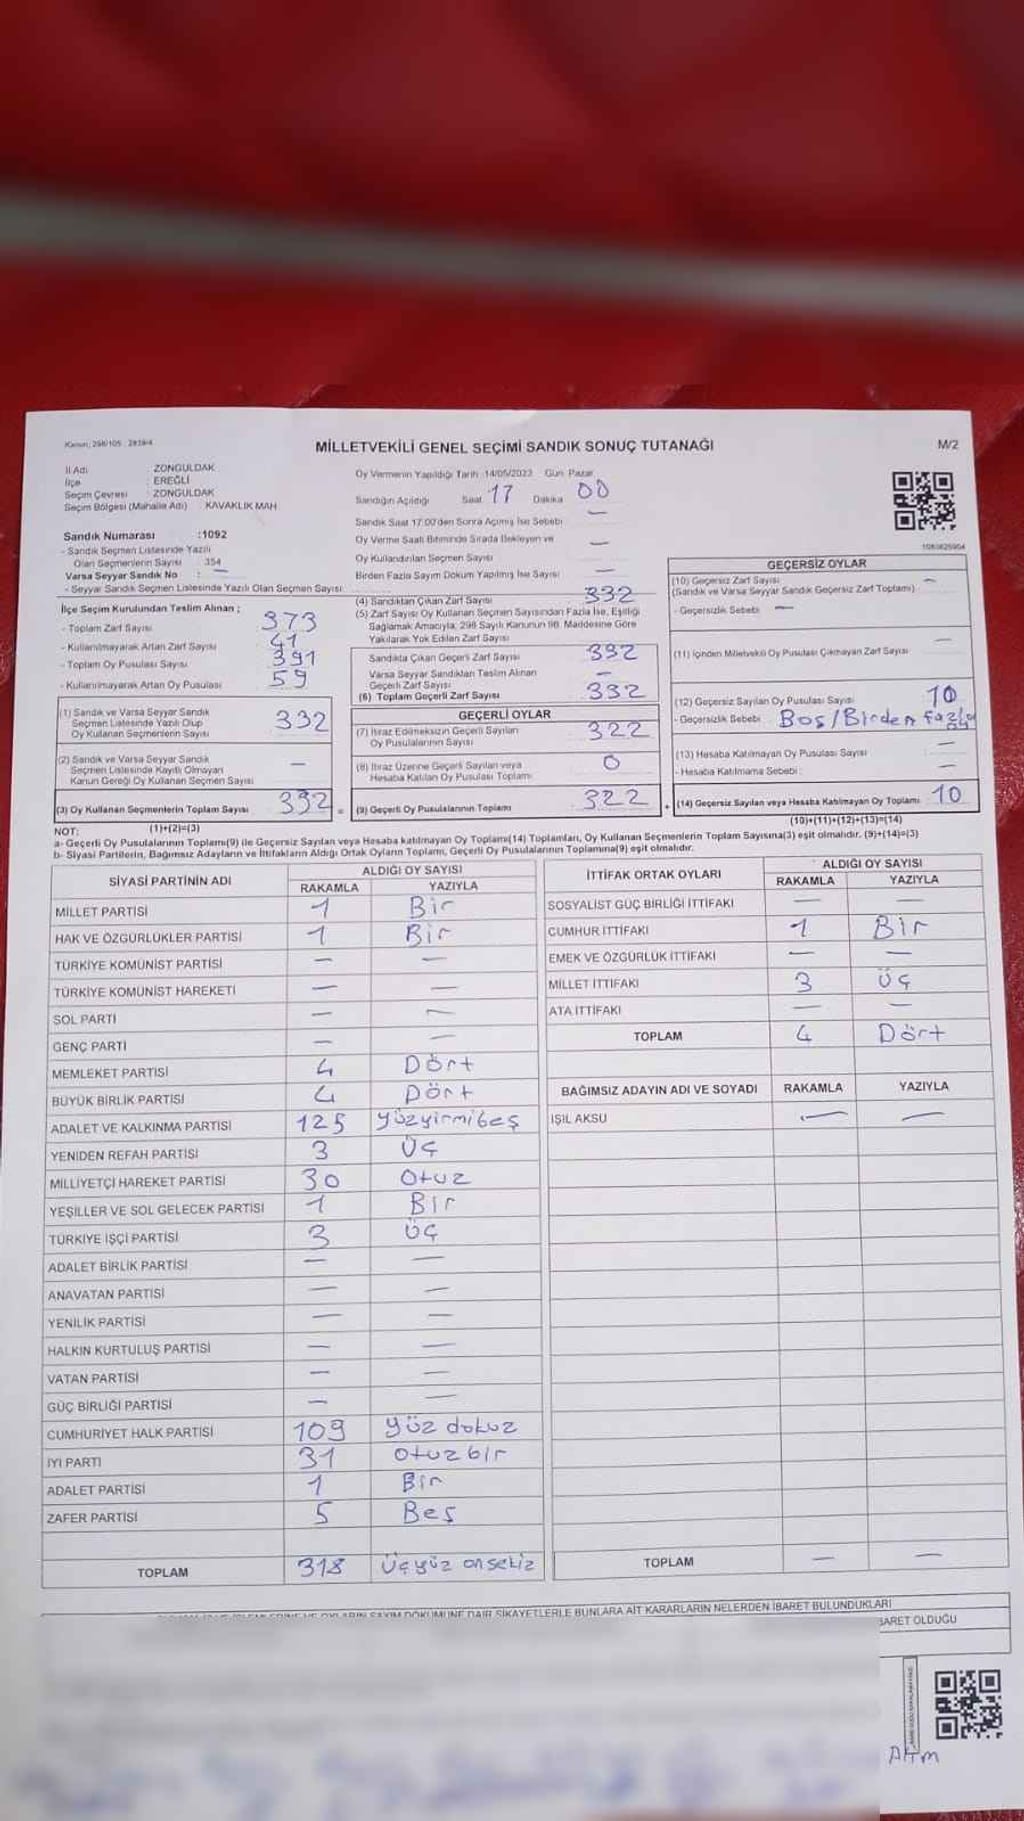 MİLLETVEKİLİ GENEL SEÇİMİ SANDIK SONUÇ TUTANAĞI
M/2
İl Adı ZONGULDAK
İlçe : EREĞLİ
Seçim Çevresi : ZONGULDAK
Seçim Bölgesi (Mahalle Adı) KAVAKLIK MAH
Sandık Numarası :1092
- Sandık Seçmen Listesinde Yazılı
Olan Seçmenlerin Sayısı : 354
Varsa Seyyar Sandık No : —
- Seyyar Sandık Seçmen Listesinde Yazılı Olan Seçmen Sayısı
Oy Vermenin Yapıldığı Tarih :14/05/2023 Gün: Pazar
Sandığın Açıldığı Saat 17 Dakika 00
Sandık Saat 17:00'den Sonra Açılmış İse Sebebi —
Oy Verme Saati Bitiminde Sırada Bekleyen ve
Oy Kullandırılan Seçmen Sayısı —
Birden Fazla Sayım Döküm Yapılmış İse Sayısı —
İlçe Seçim Kurulundan Teslim Alınan ;
- Toplam Zarf Sayısı 373
- Kullanılmayarak Artan Zarf Sayısı 41
- Toplam Oy Pusulası Sayısı 391
- Kullanılmayarak Artan Oy Pusulası 59
(1) Sandık ve Varsa Seyyar Sandık
Seçmen Listesinde Yazılı Olup
Oy Kullanan Seçmenlerin Sayısı 332
(2) Sandık ve Varsa Seyyar Sandık
Seçmen Listesinde Kayıtlı Olmayan
Kanun Gereği Oy Kullanan Seçmen Sayısı —
(3) Oy Kullanan Seçmenlerin Toplam Sayısı 332 =
(1)+(2)=(3)
(4) Sandıktan Çıkan Zarf Sayısı 332
(5) Zarf Sayısı Oy Kullanan Seçmen Sayısından Fazla İse, Eşitliği
Sağlamak Amacıyla, 298 Sayılı Kanunun 98. Maddesine Göre
Yakılarak Yok Edilen Zarf Sayısı
Sandıkta Çıkan Geçerli Zarf Sayısı 332
Varsa Seyyar Sandıktan Teslim Alınan
Geçerli Zarf Sayısı —
(6) Toplam Geçerli Zarf Sayısı 332
GEÇERLİ OYLAR
(7) İtiraz Edilmeksizin Geçerli Sayılan
Oy Pusulalarının Sayısı 322
(8) İtiraz Üzerine Geçerli Sayılan veya
Hesaba Katılan Oy Pusulası Toplamı 0
(9) Geçerli Oy Pusulalarının Toplamı 322 +
GEÇERSİZ OYLAR
(10) Geçersiz Zarf Sayısı —
(Sandık ve Varsa Seyyar Sandık Geçersiz Zarf Toplamı)
- Geçersizlik Sebebi —
(11) İçinden Milletvekili Oy Pusulası Çıkmayan Zarf Sayısı —
(12) Geçersiz Sayılan Oy Pusulası Sayısı 10
- Geçersizlik Sebebi : Boş/Birden fazla
(13) Hesaba Katılmayan Oy Pusulası Sayısı —
- Hesaba Katılmama Sebebi : —
(14) Geçersiz Sayılan veya Hesaba Katılmayan Oy Toplamı 10
(10)+(11)+(12)+(13)=(14)
NOT:
a- Geçerli Oy Pusulalarının Toplamı(9) ile Geçersiz Sayılan veya Hesaba katılmayan Oy Toplamı(14) Toplamları, Oy Kullanan Seçmenlerin Toplam Sayısına(3) eşit olmalıdır. (9)+(14)=(3)
b- Siyasi Partilerin, Bağımsız Adayların ve İttifakların Aldığı Ortak Oyların Toplamı, Geçerli Oy Pusulalarının Toplamına(9) eşit olmalıdır.
SİYASİ PARTİNİN ADI ALDIĞI OY SAYISI
RAKAMLA YAZIYLA
MİLLET PARTİSİ 1 Bir
HAK VE ÖZGÜRLÜKLER PARTİSİ 1 Bir
TÜRKİYE KOMÜNİST PARTİSİ — —
TÜRKİYE KOMÜNİST HAREKETİ — —
SOL PARTİ — —
GENÇ PARTİ — —
MEMLEKET PARTİSİ 4 Dört
BÜYÜK BİRLİK PARTİSİ 4 Dört
ADALET VE KALKINMA PARTİSİ 125 yüzyirmibeş
YENİDEN REFAH PARTİSİ 3 Üç
MİLLİYETÇİ HAREKET PARTİSİ 30 Otuz
YEŞİLLER VE SOL GELECEK PARTİSİ 1 Bir
TÜRKİYE İŞÇİ PARTİSİ 3 Üç
ADALET BİRLİK PARTİSİ — —
ANAVATAN PARTİSİ — —
YENİLİK PARTİSİ — —
HALKIN KURTULUŞ PARTİSİ — —
VATAN PARTİSİ — —
GÜÇ BİRLİĞİ PARTİSİ — —
CUMHURİYET HALK PARTİSİ 109 yüz dokuz
İYİ PARTİ 31 Otuz bir
ADALET PARTİSİ 1 Bir
ZAFER PARTİSİ 5 Beş
TOPLAM 318 Üçyüz onsekiz
İTTİFAK ORTAK OYLARI ALDIĞI OY SAYISI
RAKAMLA YAZIYLA
SOSYALİST GÜÇ BİRLİĞİ İTTİFAKI — —
CUMHUR İTTİFAKI 1 Bir
EMEK VE ÖZGÜRLÜK İTTİFAKI — —
MİLLET İTTİFAKI 3 Üç
ATA İTTİFAKI — —
TOPLAM 4 Dört
BAĞIMSIZ ADAYIN ADI VE SOYADI RAKAMLA YAZIYLA
IŞIL AKSU — —
TOPLAM — —
DÖKÜMÜNE DAİR ŞİKAYETLERLE BUNLARA AİT KARARLARIN NELERDEN İBARET BULUNDUKLARI
OLDUĞU